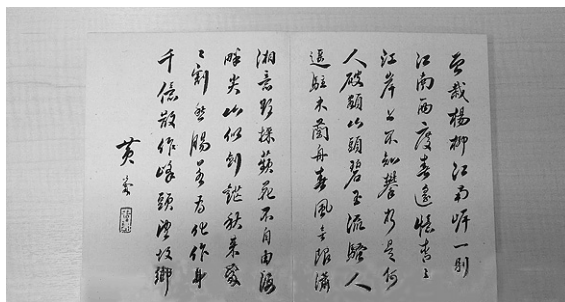 曾栽楊柳江南岸一別
江南兩度春遙憶青々
江岸上不知攀折是何
人破額山頭碧玉流騷人
遙駐木蘭舟春風無限瀟
湘意欲採蘋花不自由海
畔尖山似劍鋩秋來處
々割愁腸若為化作身
千億散作峰頭望故鄉
黃